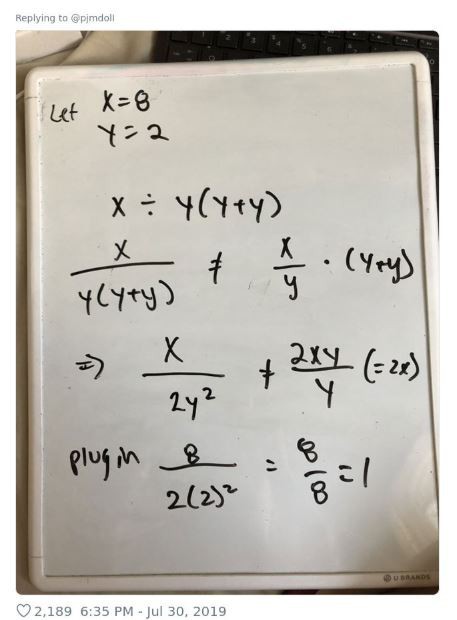 Replying to @pjmdoll
Let X=8
Y=2
X ÷ Y(Y+Y)
X/Y(Y+Y) ≠ X/y · (Y+Y)
⇒ X/2y² ≠ 2xy/y (=2x)
plug in 8/2(2)² = 8/8 = 1
U BRANDS
♡ 2,189 6:35 PM - Jul 30, 2019